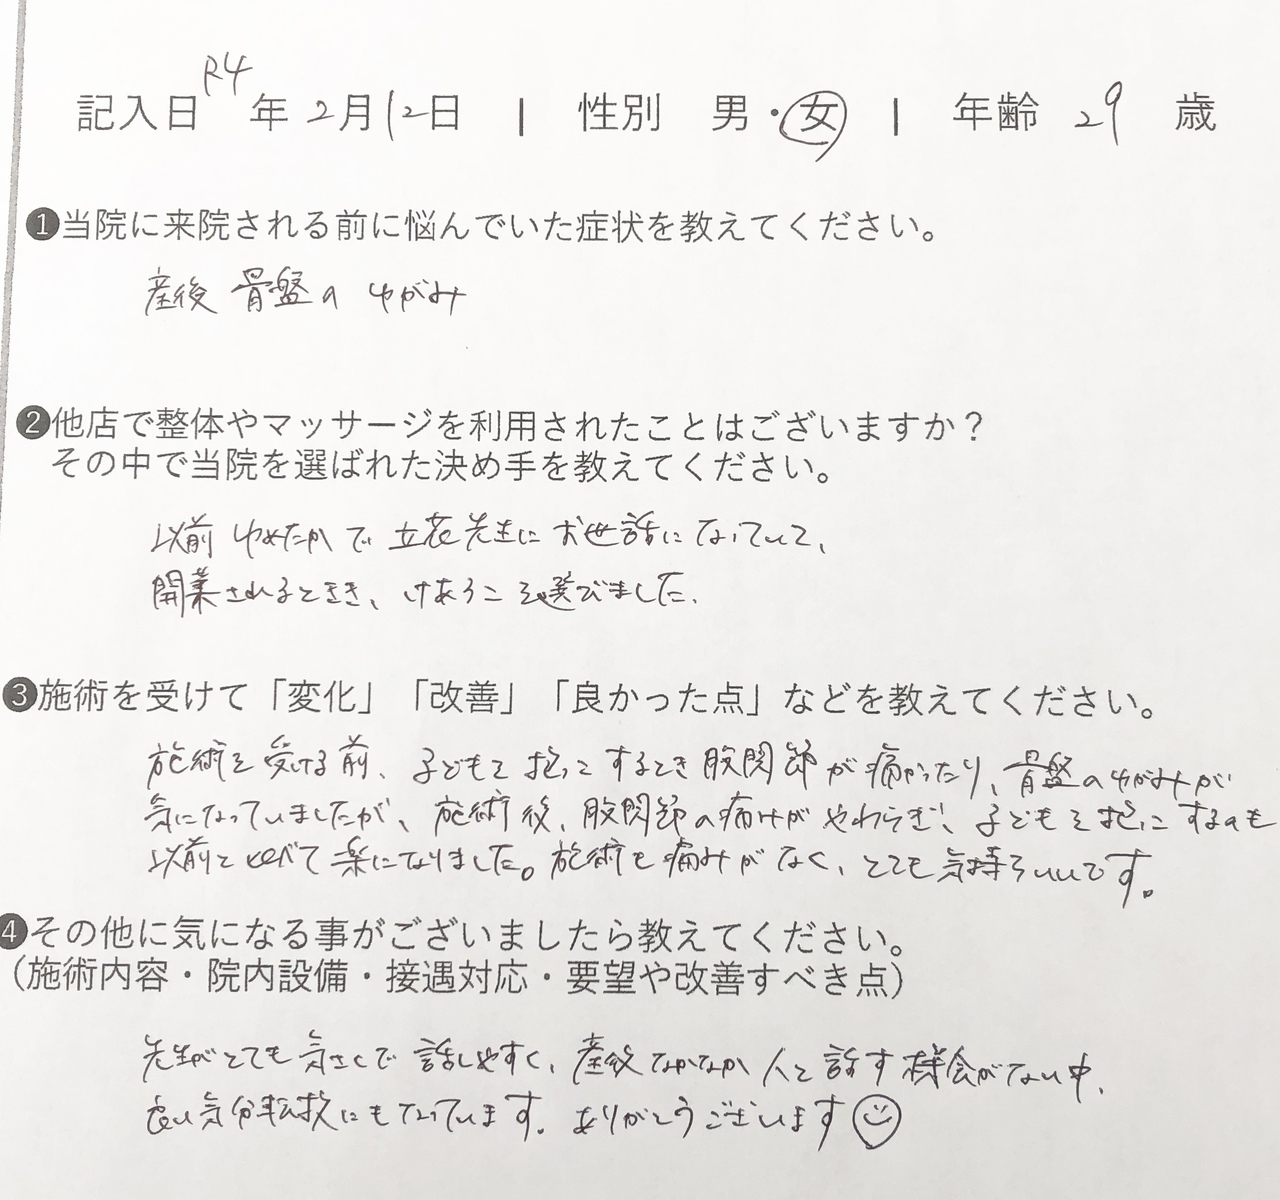 記入日 R4年 2月12日 | 性別 男・女 | 年齢 29 歳
❶当院に来院される前に悩んでいた症状を教えてください。
産後 骨盤の ゆがみ
❷他店で整体やマッサージを利用されたことはございますか？
その中で当院を選ばれた決め手を教えてください。
以前 ゆめたか で 立花先生に お世話に なっていて、
開業されるときき、けあろこを選びました.
❸施術を受けて「変化」「改善」「良かった点」などを教えてください。
施術を 受ける前、子どもを 抱っこ するとき 股関節が 痛かったり、骨盤のゆがみが
気になっていましたが、施術後、股関節の痛みが やわらぎ、子どもを抱っこするのも
以前と比べて 楽になりました。施術も 痛みが なく、とても 気持ちいいです。
❹その他に気になる事がございましたら教えてください。
（施術内容・院内設備・接遇対応・要望や改善すべき点）
先生がとても 気さくで 話しやすく、産後 なかなか 人と 話す 機会がない中、
良い気分転換にもなっています。ありがとうございます